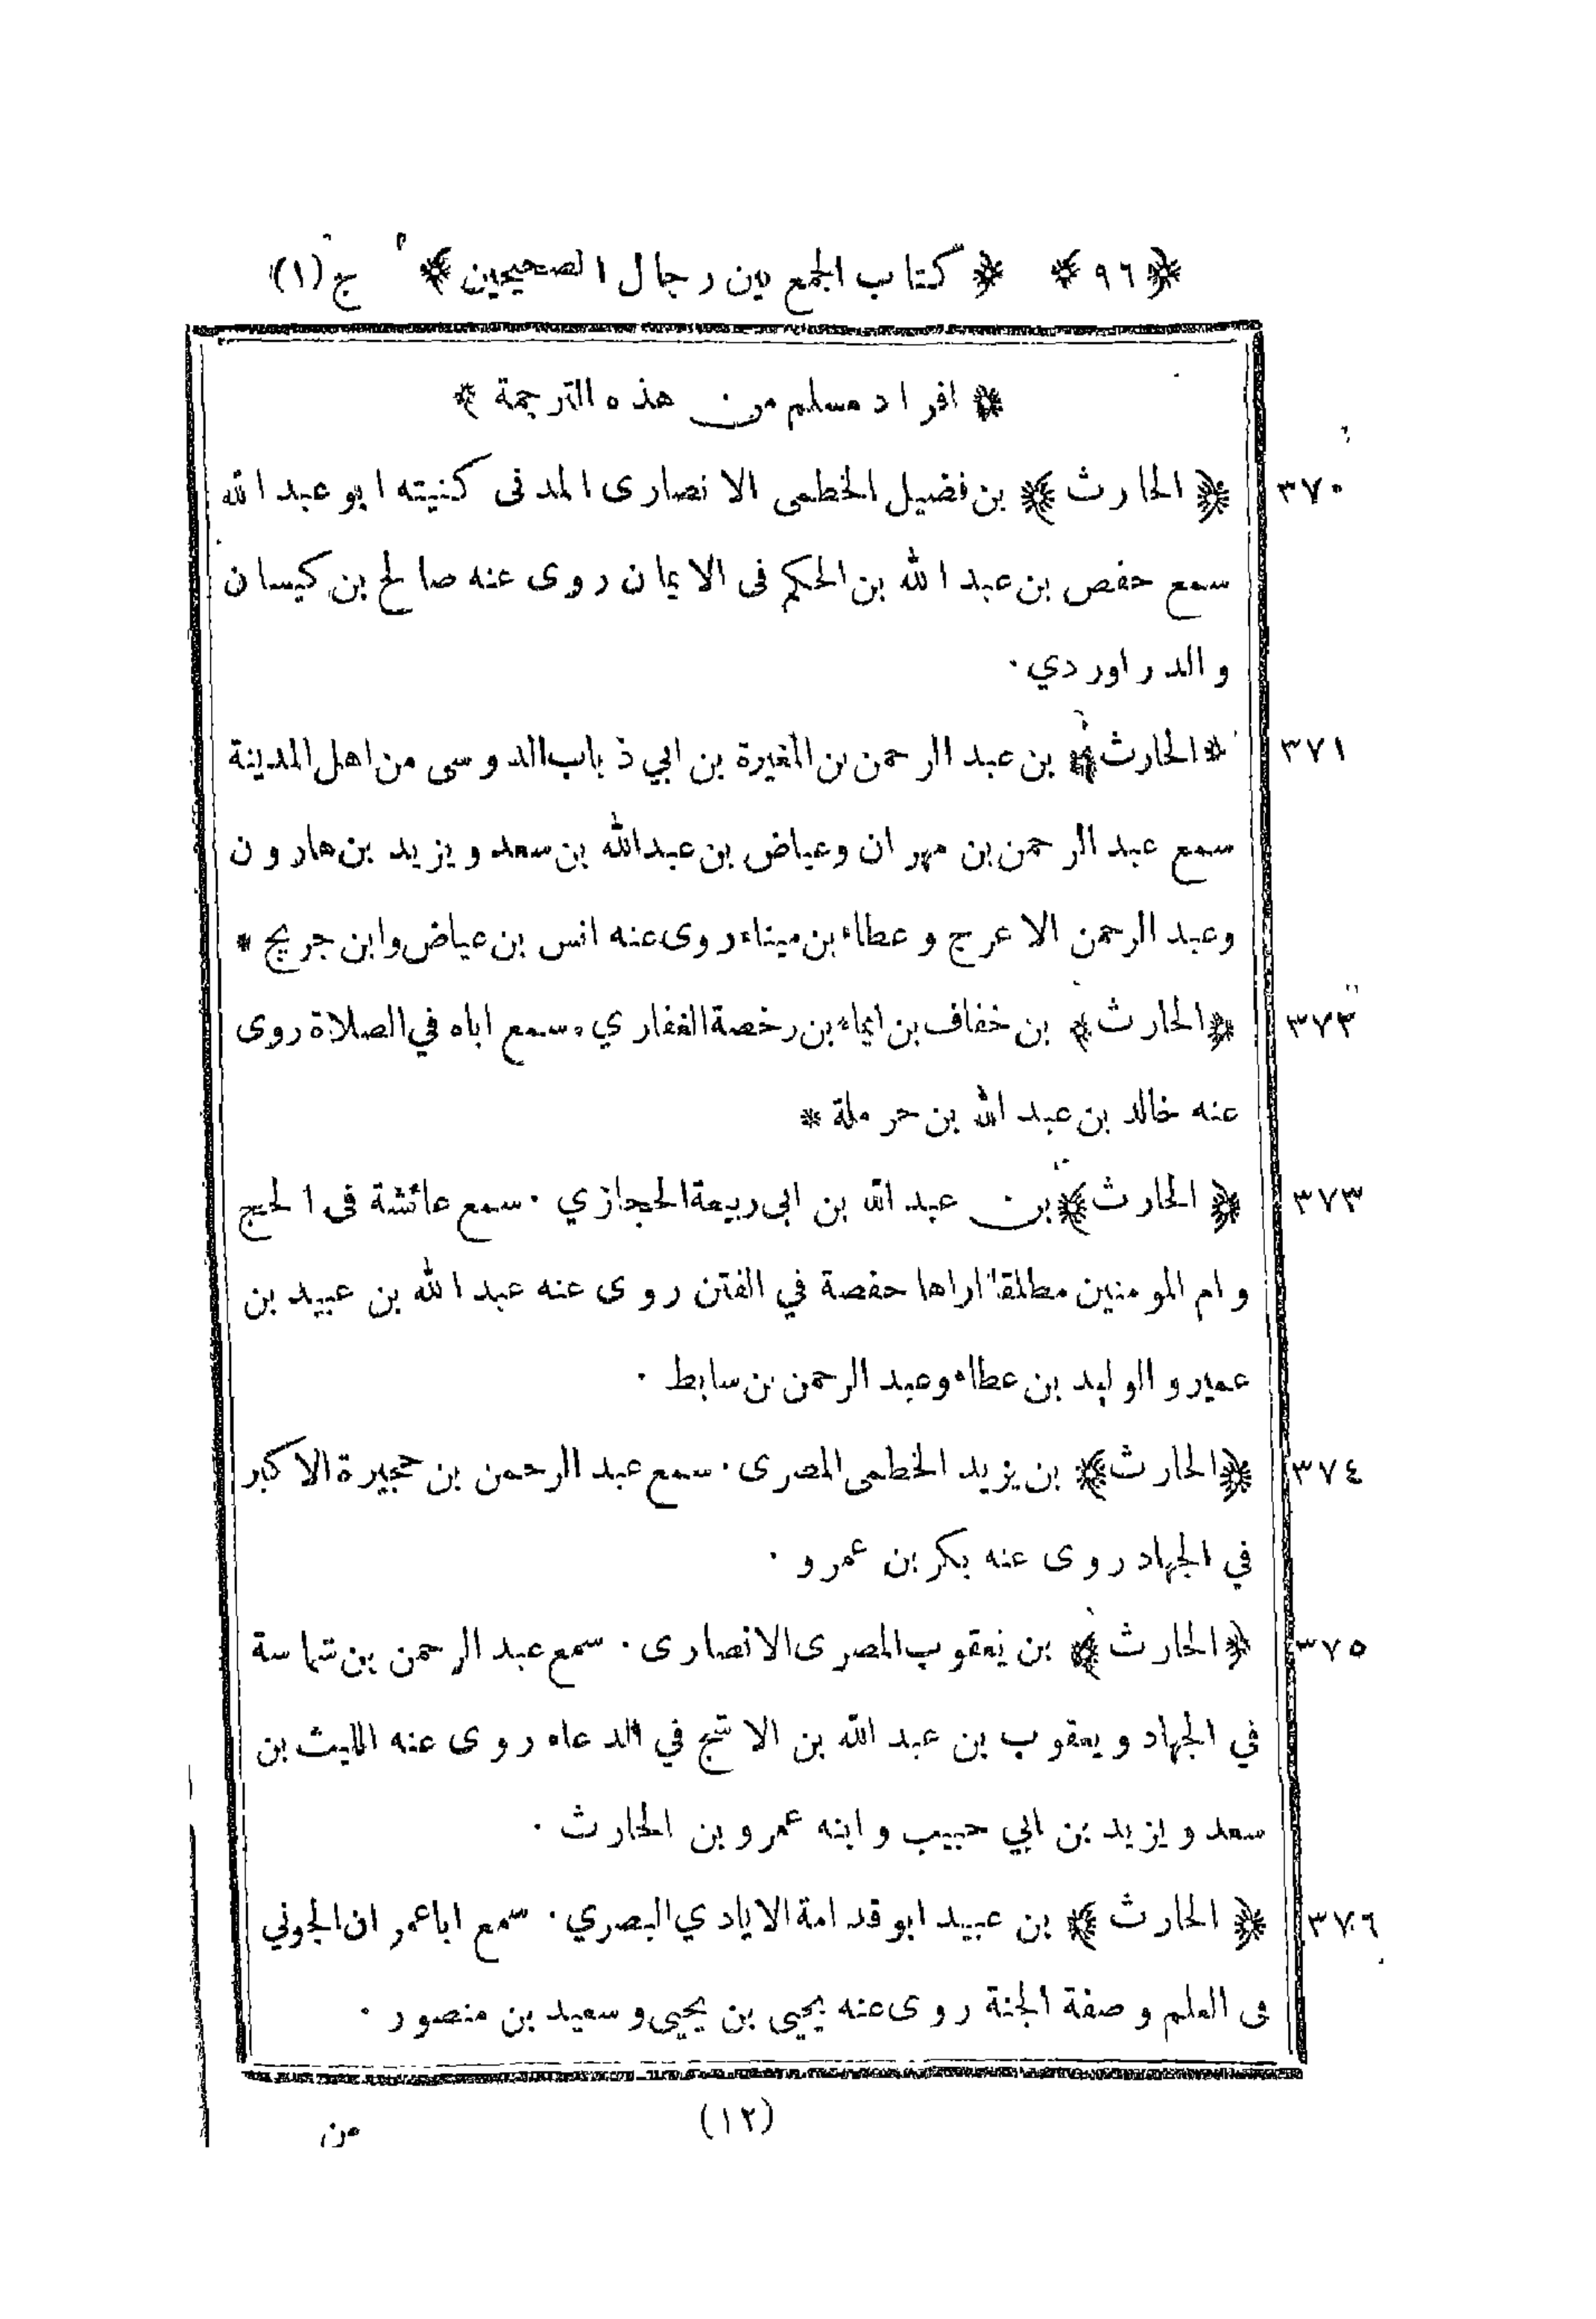 ﴿٩٦﴾ ﴿كتاب الجمع بين رجال الصحيحين﴾ ج (١)
﴿افراد مسلم من هذه الترجمة﴾
٣٧٠ ﴿الحارث﴾ بن فضيل الخطمى الانصارى المدنى كنيته ابو عبد الله
سمع حفص بن عبد الله بن الحكم فى الايمان روى عنه صالح بن كيسان
والدراوردي ٠
٣٧١ ﴿الحارث﴾ بن عبد الرحمن بن المغيرة بن ابي ذباب الدوسى من اهل المدينة
سمع عبد الرحمن بن مهران وعياض بن عبدالله بن سعد ويزيد بن هارون
وعبد الرحمن الاعرج وعطاء بن ميناء روى عنه انس بن عياض وابن جريج *
٣٧٢ ﴿الحارث﴾ بن خفاف بن ايماء بن رخصة الغفاري ٠ سمع اباه في الصلاة روى
عنه خالد بن عبد الله بن حرملة *
٣٧٣ ﴿الحارث﴾ بن عبد الله بن ابى ربيعة الحجازي ٠ سمع عائشة فى الحج
وام المومنين مطلقا اراها حفصة في الفتن روى عنه عبد الله بن عبيد بن
عمير والوليد بن عطاء وعبد الرحمن بن سابط ٠
٣٧٤ ﴿الحارث﴾ بن يزيد الخطمى المصرى ٠ سمع عبد الرحمن بن حجيرة الاكبر
في الجهاد روى عنه بكر بن عمرو ٠
٣٧٥ ﴿الحارث﴾ بن يعقوب المصرى الانصارى ٠ سمع عبد الرحمن بن شماسة
في الجهاد ويعقوب بن عبد الله بن الاشج في الدعاء روى عنه الليث بن
سعد ويزيد بن ابي حبيب وابنه عمرو بن الحارث ٠
٣٧٦ ﴿الحارث﴾ بن عبيد ابو قدامة الايادي البصري ٠ سمع ابا عمران الجوني
فى العلم وصفة الجنة روى عنه يحيى بن يحيى وسعيد بن منصور ٠
(١٢)
من